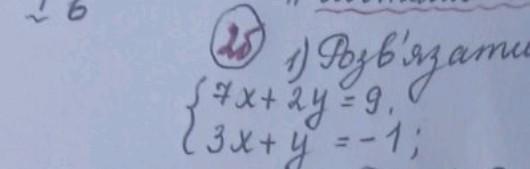 № 6
25
1) Розв'язати
{ 7x + 2y = 9,
{ 3x + y = -1;